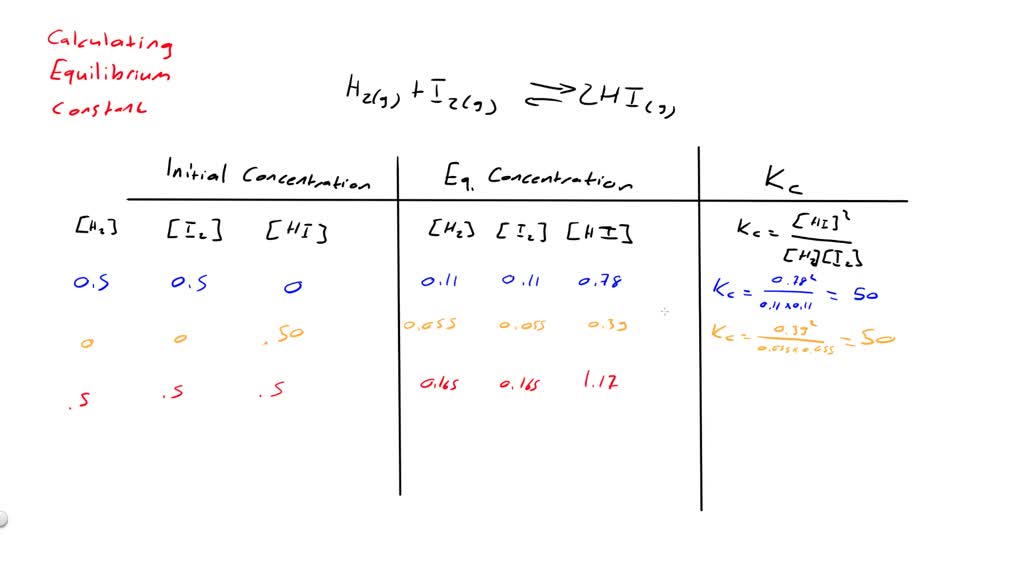 Calculating
Equilibrium
Constant
H₂(g) + I₂(g) ⇌ 2HI(g)
Initial Concentration Eq. Concentration Kc
[H₂] [I₂] [HI] [H₂] [I₂] [HI] Kc = [HI]² / [H₂][I₂]
0.5 0.5 0 0.11 0.11 0.78 Kc = 0.78² / 0.11 x 0.11 = 50
0 0 .50 0.055 0.055 0.39 Kc = 0.39² / 0.055 x 0.055 = 50
.5 .5 .5 0.165 0.165 1.17